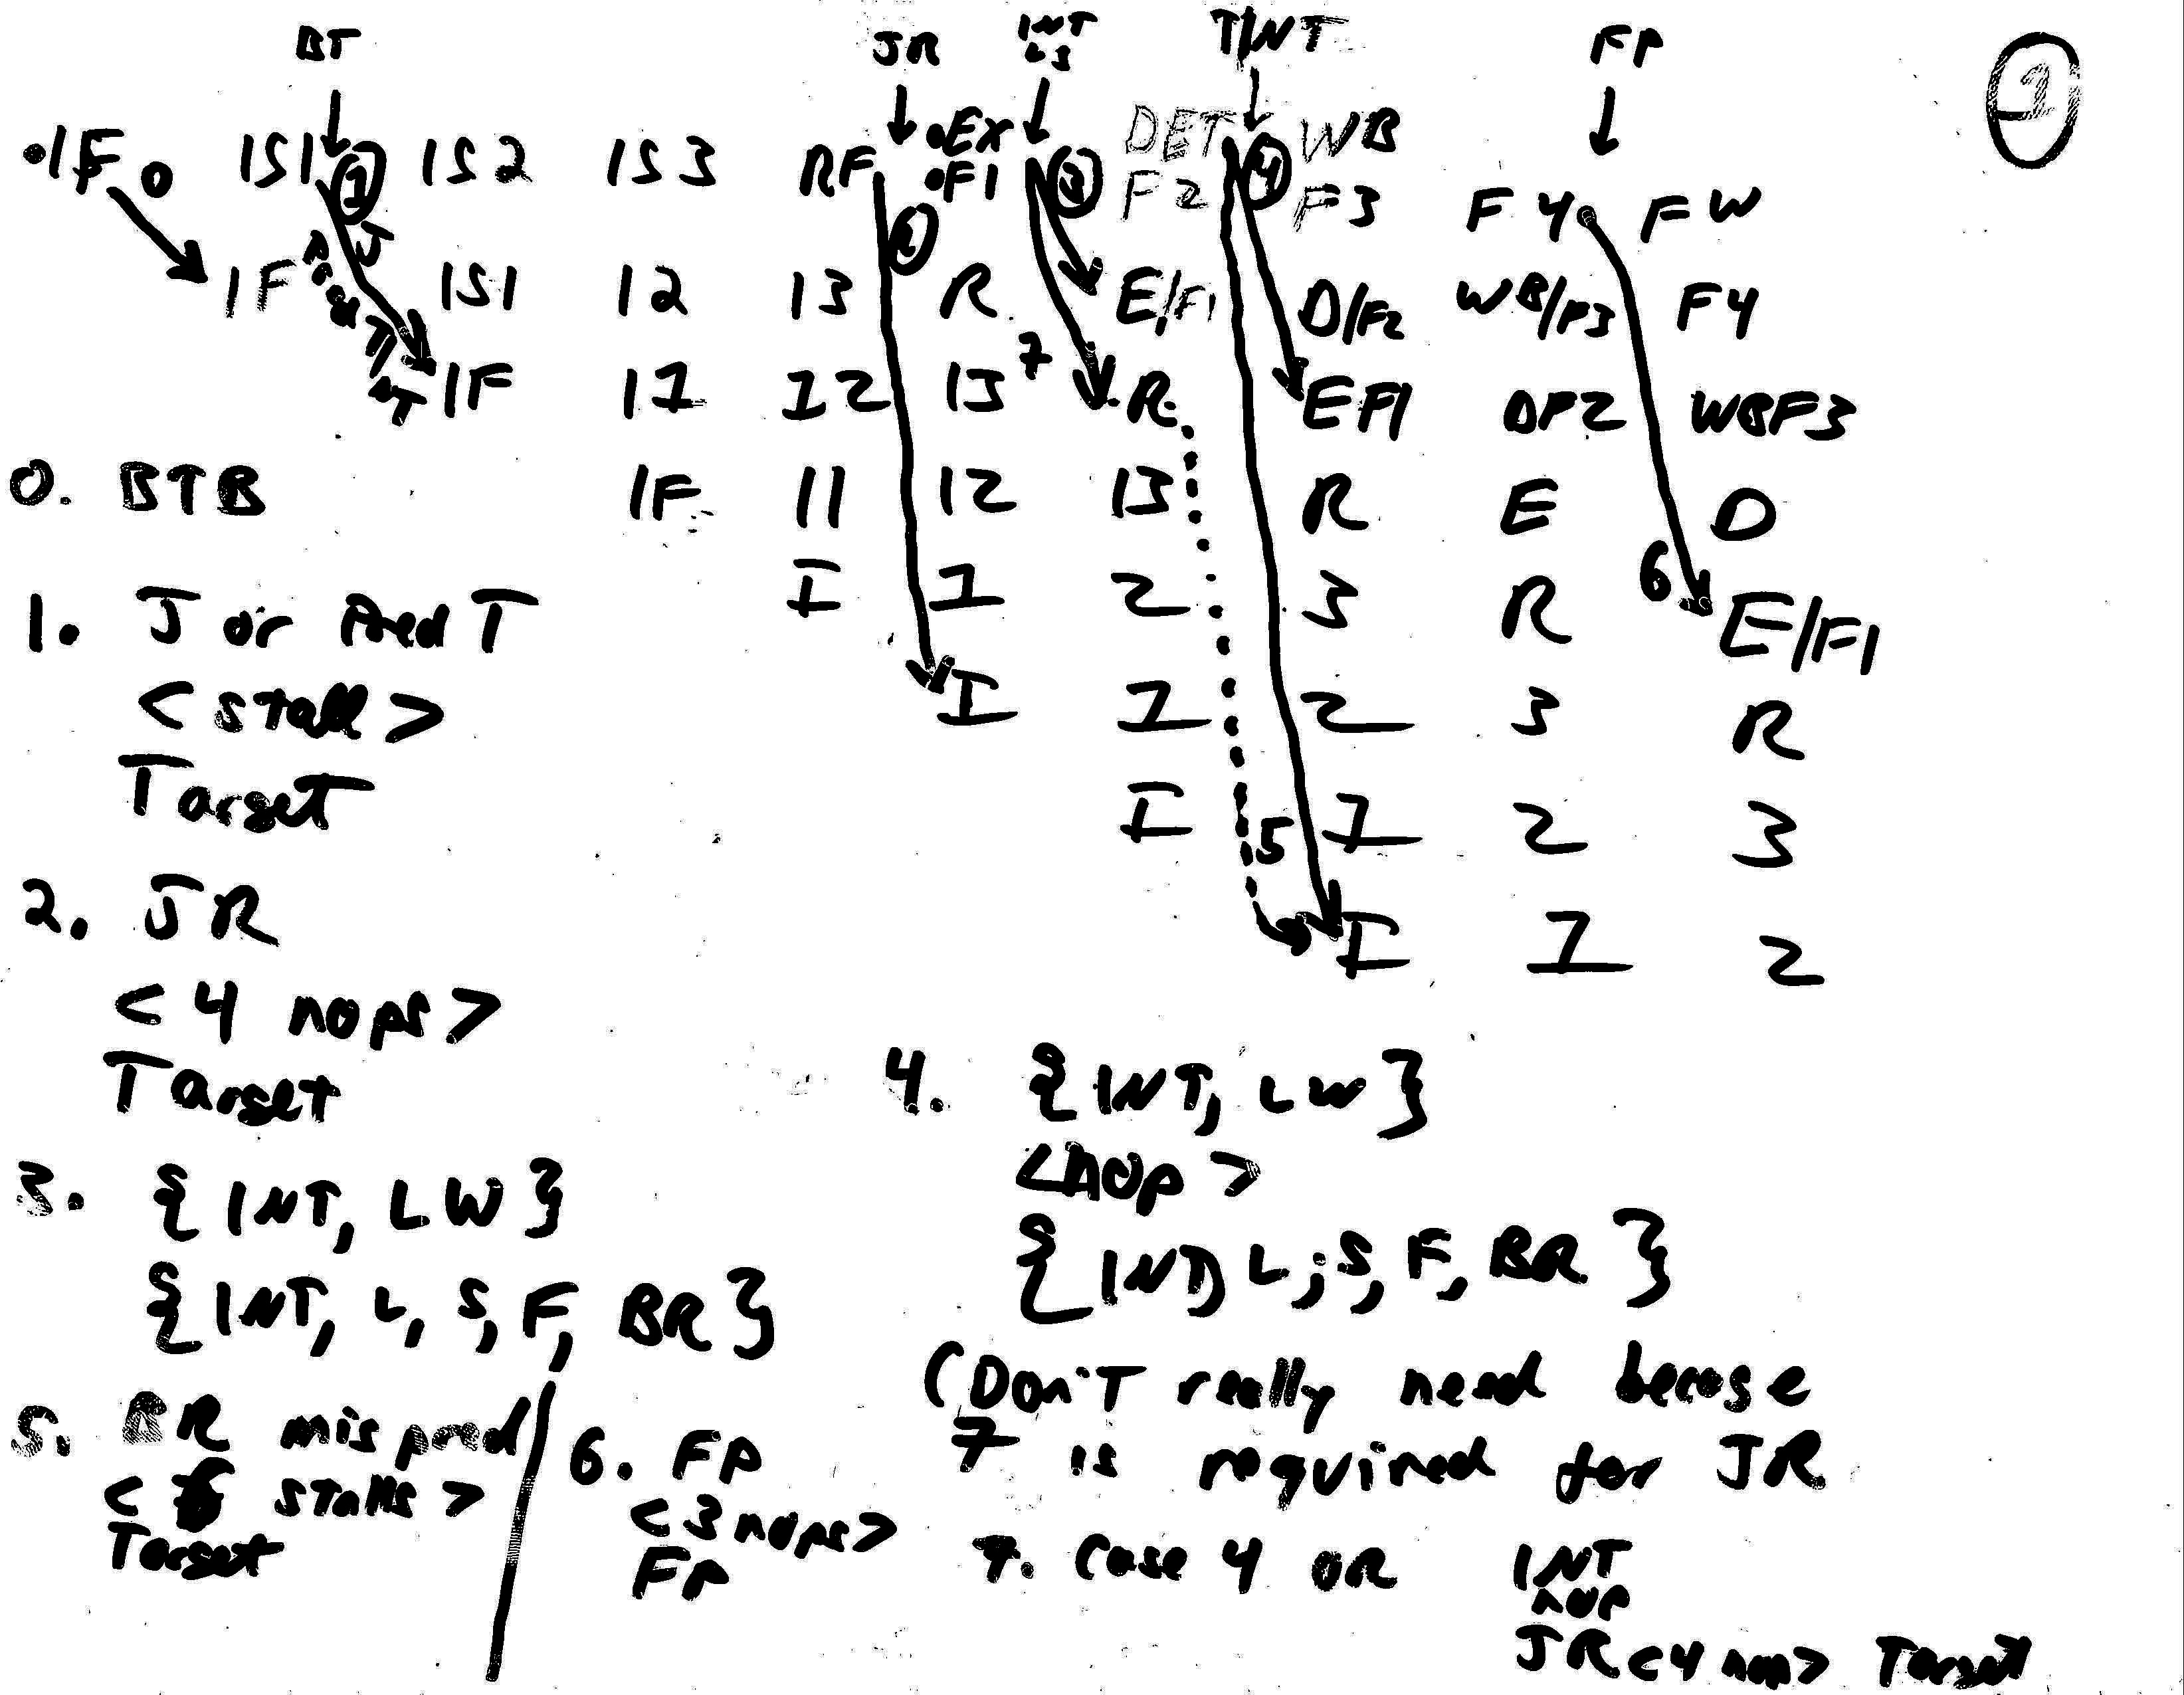 BT JR INT T/NT FP
LS
1
•IF 0 IS1 1 IS2 IS3 RF •EX 3 DET 4 WB
•F1 F2 F3 F4 FW
2
IF IS1 I2 I3 R E/F1 D/F2 WB/F3 F4
IF I1 I2 I3 7 R EF1 DF2 WBF3
0. BTB IF I1 I2 I3 R E D
I 1 2 3 R 6 E/F1
1. J or Pred T
<stall> I 1 2 3 R
Target I 5 1 2 3
2. JR I 1 2
<4 nops>
Target
3. {INT, LW}
{INT, L, S, F, BR}
4. {INT, LW}
<nop>
{INT, L, S, F, BR}
(Don't really need becase
7 is required for JR
5. BR mispred
< stalls>
Target
6. FP
<3 nops>
FP
7. Case 4 OR INT
nop
JR <4 nop> Target